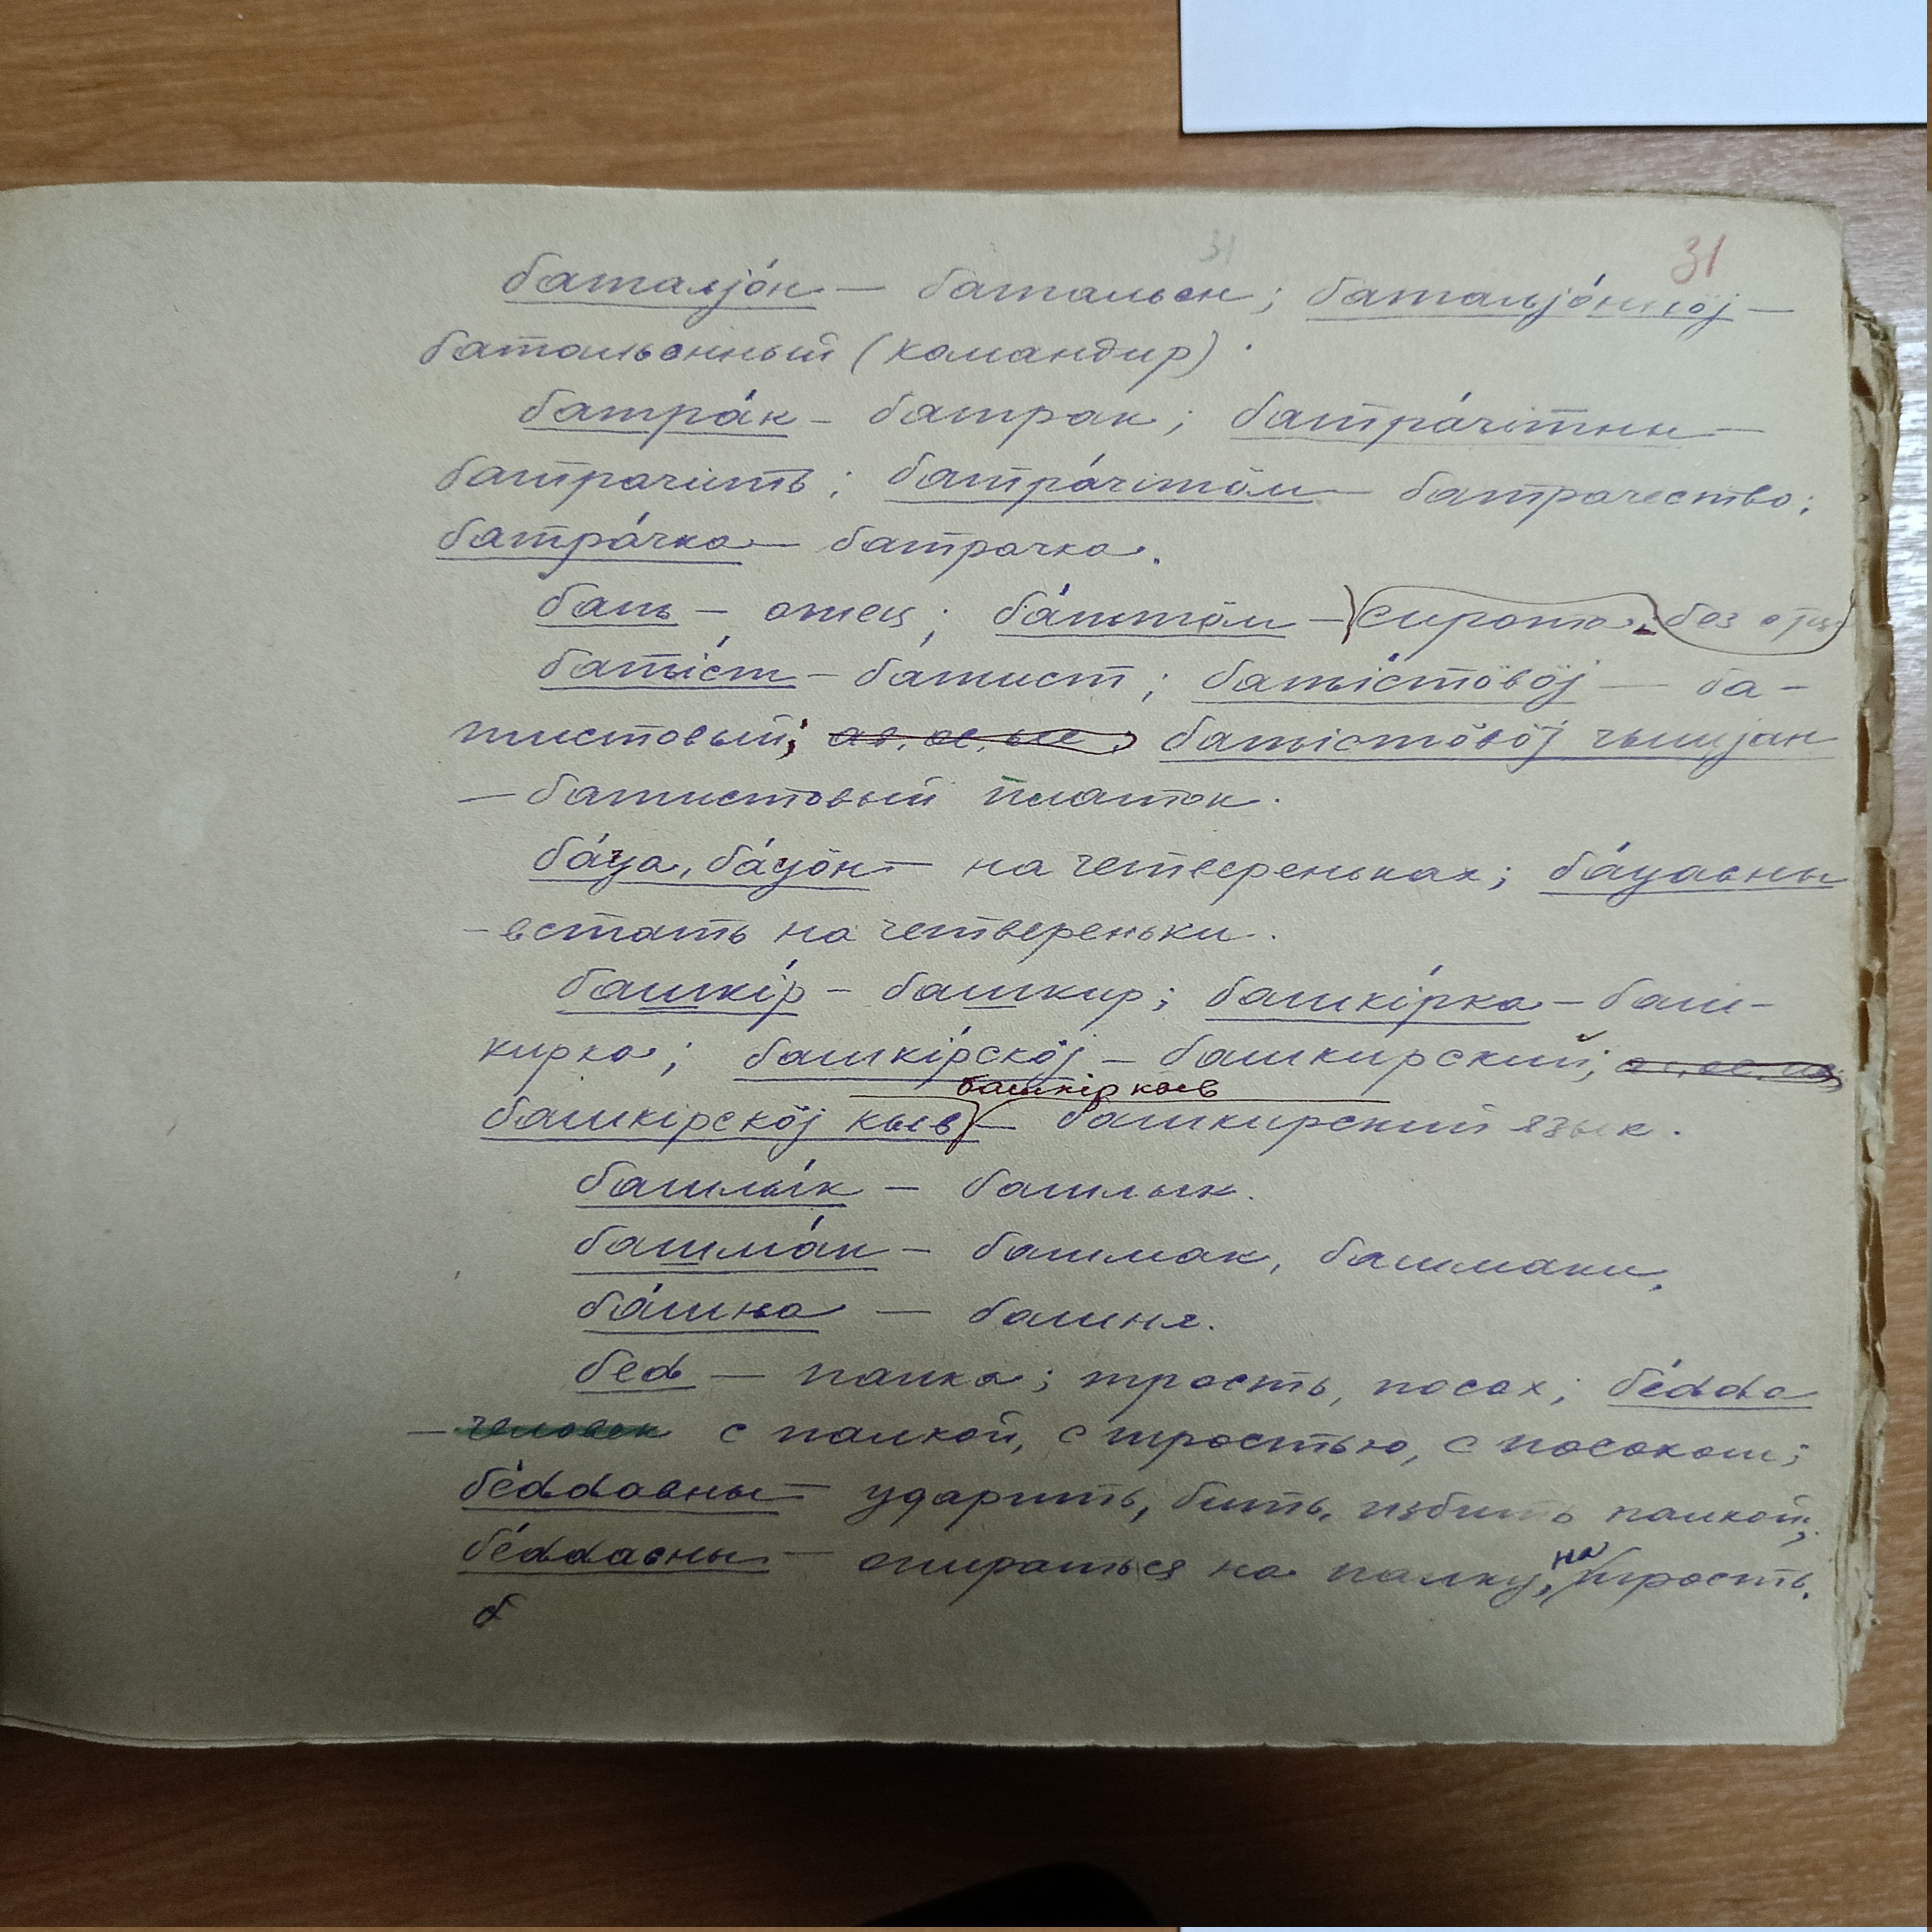 31 31
баталјо́н — батальон; баталјо́ннöј —
батальонный (командир).
батра́к – батрак; батра́чітны —
батрачить; батра́чітöм — батрачество;
батра́чка — батрачка.
бать – отец; ба́тьтöм — сирота, без отца
батіст – батист; батістöвöј — ба–
тистовый; батістöвöј чышјан
— батистовый платок.
ба́уа, ба́уöн — на четвереньках; ба́уасны
– встать на четвереньки.
башкі́р – башкир; башкі́рка – баш–
кирка; башкі́рскöј – башкирский;
башкір кыв
башкірскöј кыв — башкирский язык.
башлы́к — башлык.
башма́к – башмак, башмаки.
ба́шња — башня.
бед — палка; трость, посох; бе́dda
— человек с палкой, с тростью, с посохом;
бе́ddaвны — ударить, бить, избить палкой;
бе́ddaсны — опираться на палку, на трость.
б